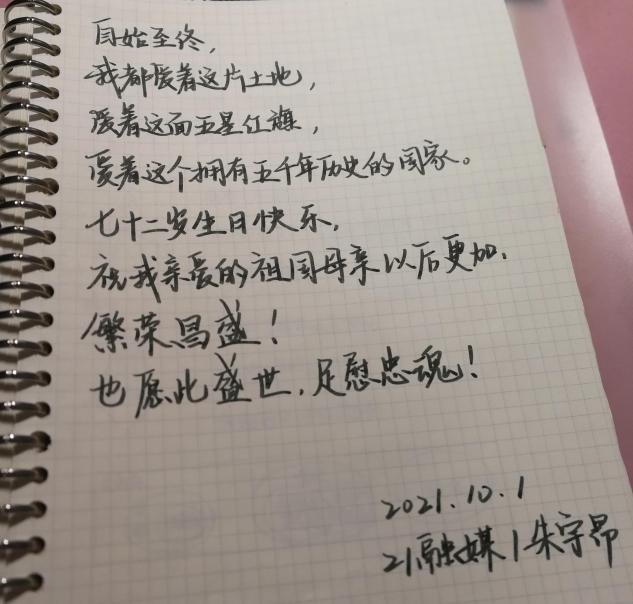 自始至终，
我都爱着这片土地，
爱着这面五星红旗，
爱着这个拥有五千年历史的国家。
七十二岁生日快乐，
祝我亲爱的祖国母亲以后更加，
繁荣昌盛！
也愿此盛世，足慰忠魂！
2021.10.1
21融媒1朱宇昂